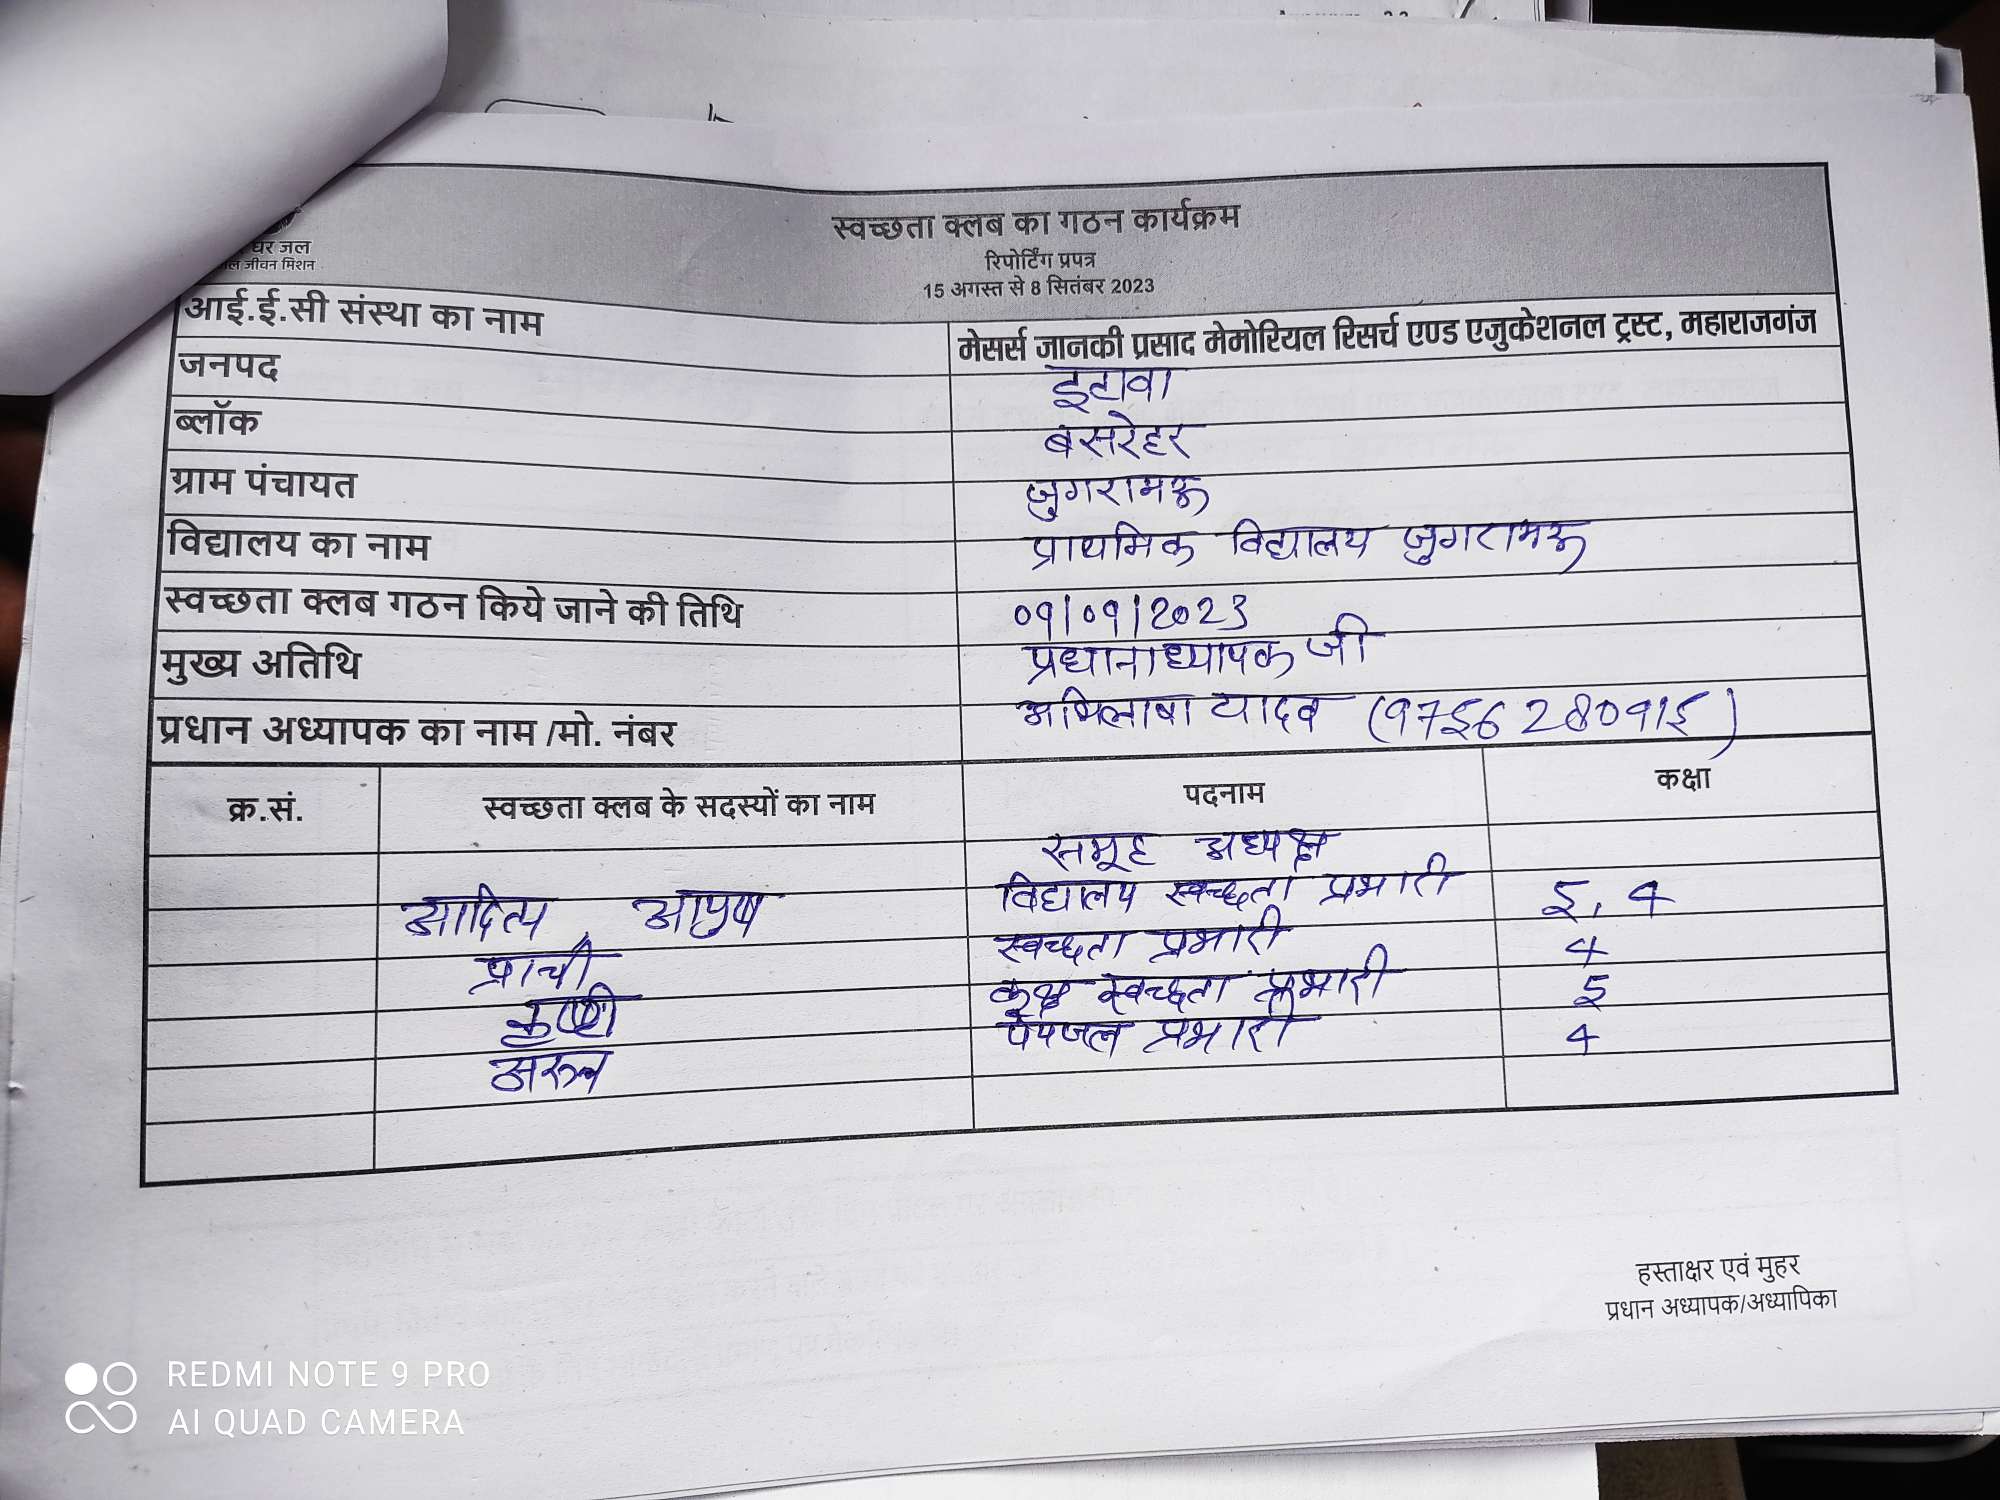 घर जल
जीवन मिशन
स्वच्छता क्लब का गठन कार्यक्रम
रिपोर्टिंग प्रपत्र
15 अगस्त से 8 सितंबर 2023
आई.ई.सी संस्था का नाम मेसर्स जानकी प्रसाद मेमोरियल रिसर्च एण्ड एजुकेशनल ट्रस्ट, महाराजगंज
जनपद इटावा
ब्लॉक बसरेहर
ग्राम पंचायत जुगरामऊ
विद्यालय का नाम प्राथमिक विद्यालय जुगरामऊ
स्वच्छता क्लब गठन किये जाने की तिथि 09/09/2023
मुख्य अतिथि प्रधानाध्यापक जी
प्रधान अध्यापक का नाम /मो. नंबर अभिलाषा यादव (9756280915)
क्र.सं. स्वच्छता क्लब के सदस्यों का नाम पदनाम कक्षा
समूह अध्यक्ष
आदित्य, आयुष विद्यालय स्वच्छता प्रभारी 5, 4
प्राची स्वच्छता प्रभारी 4
कक्ष स्वच्छता प्रभारी 5
पेयजल प्रभारी 4
हस्ताक्षर एवं मुहर
प्रधान अध्यापक/अध्यापिका
REDMI NOTE 9 PRO
AI QUAD CAMERA